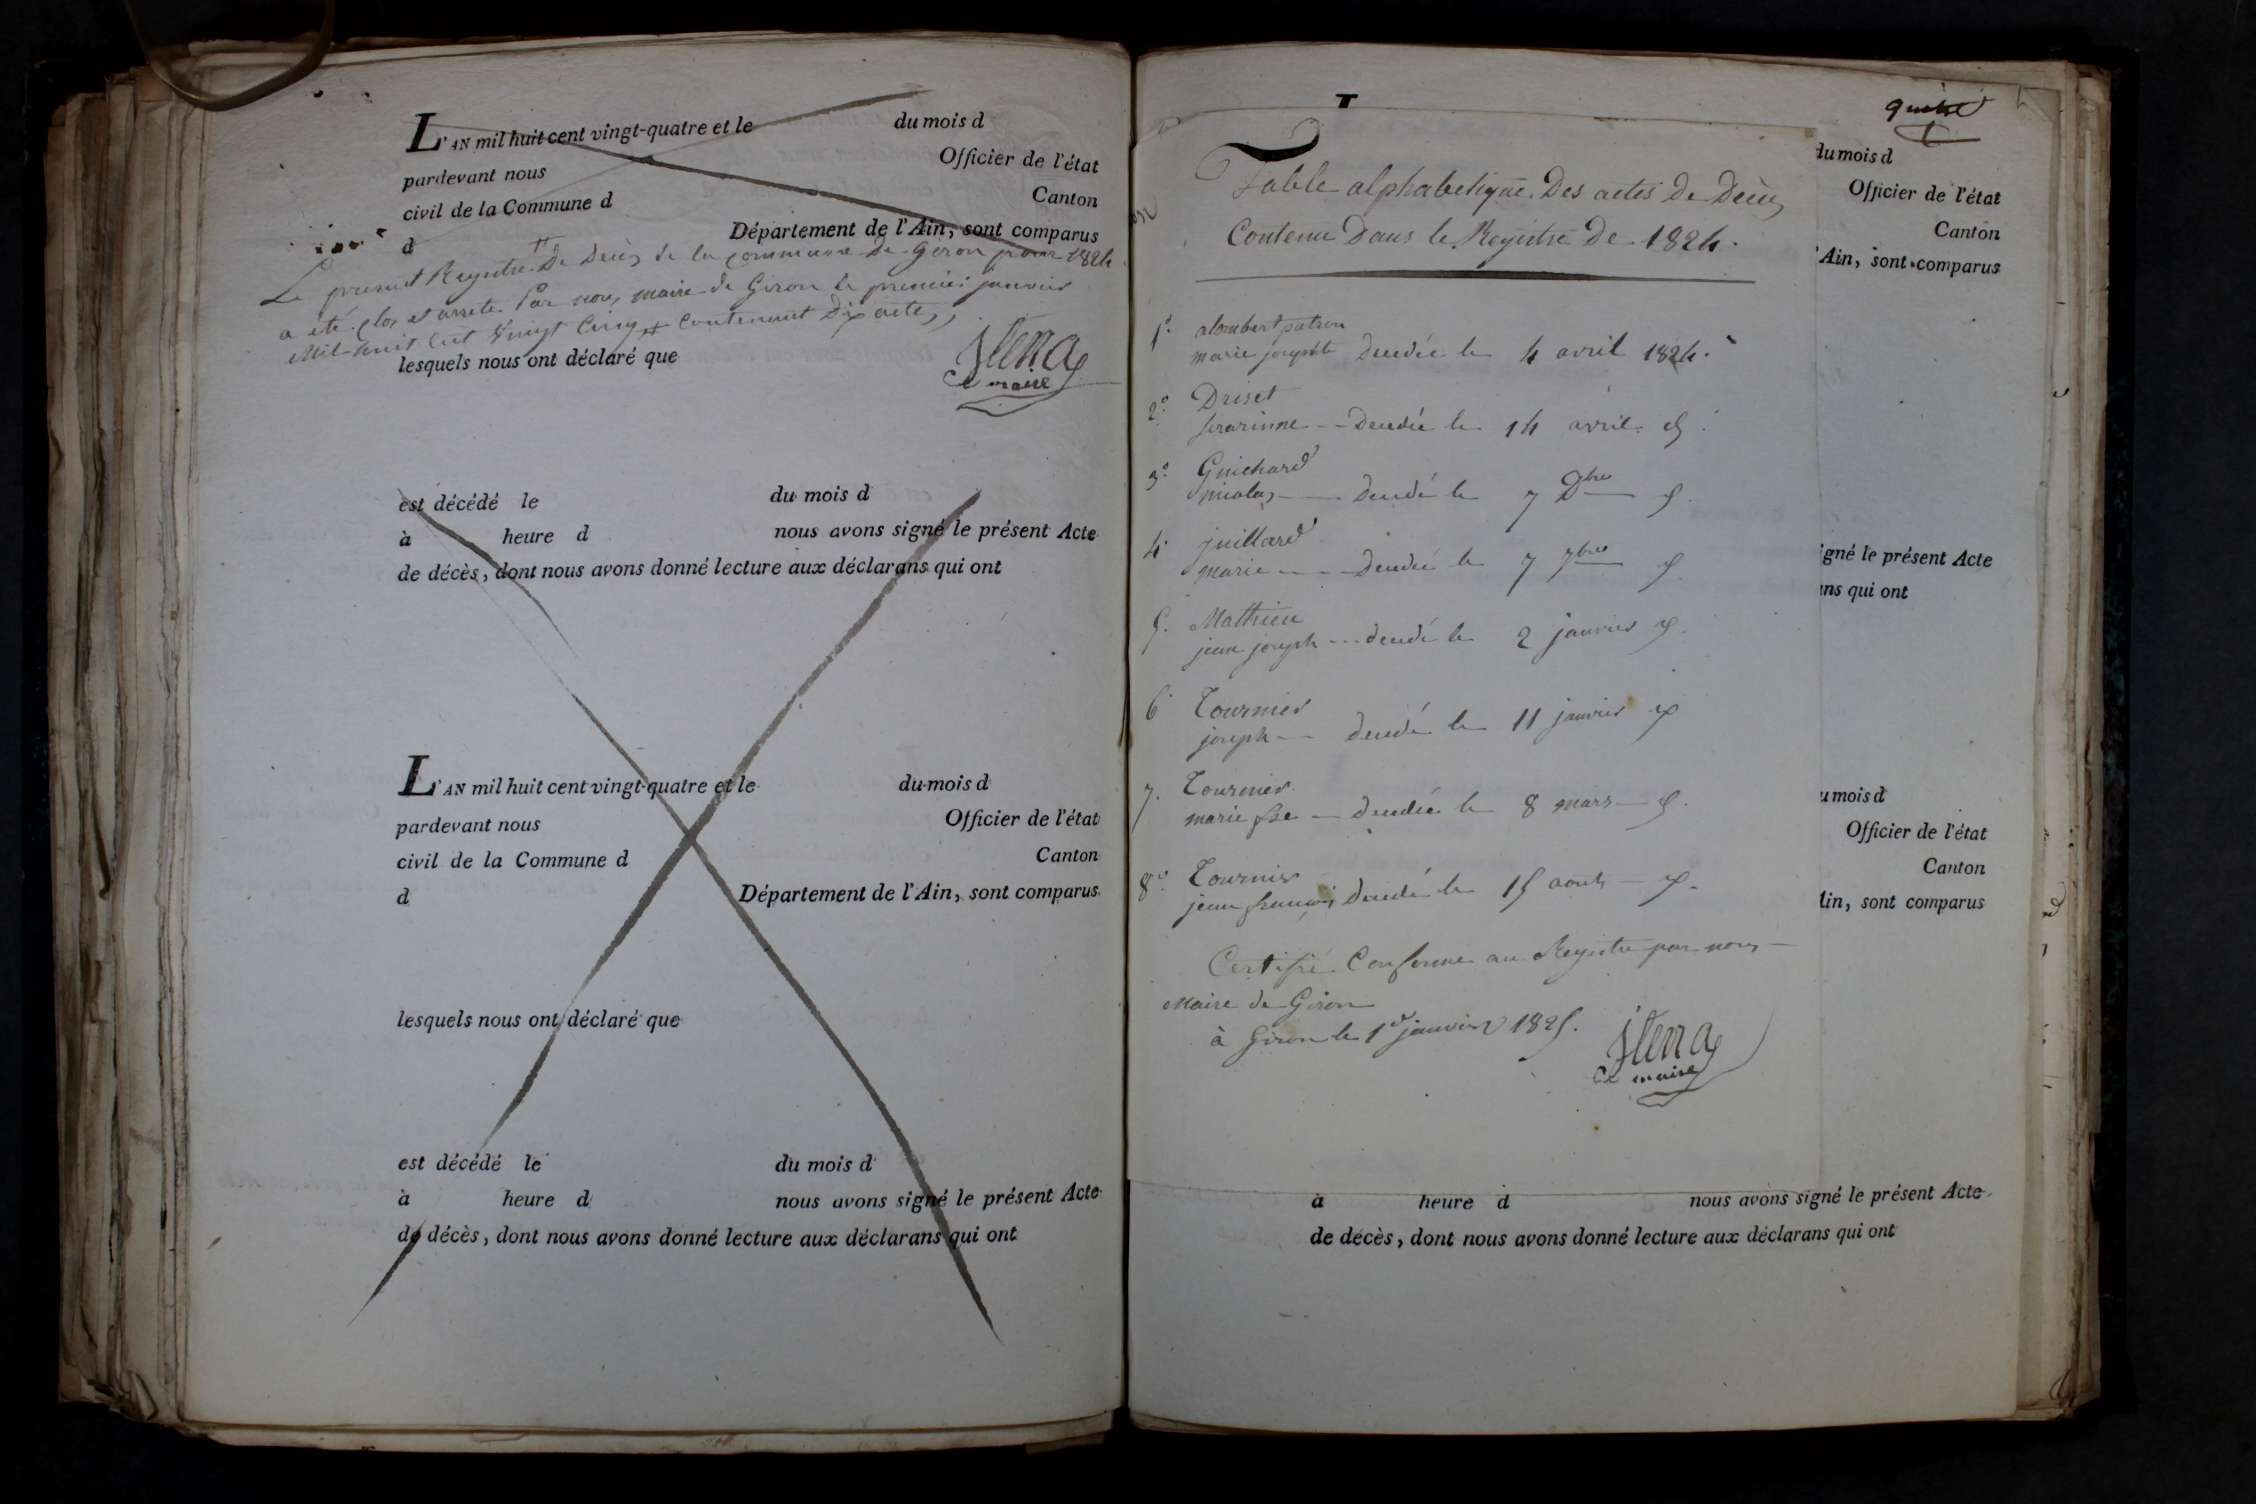 L'AN mil huit cent vingt-quatre et le du mois d
pardevant nous Officier de l'état
civil de la Commune d Canton
d Département de l'Ain, sont comparus
Le présent Registre De Décès de la commune de Giron pour 1824
a été clos et arrêté Par nous maire de Giron le premier janvier
Mil huit Cent Vingt Cinq contenant Dix actes
lesquels nous ont déclaré que
le maire
est décédé le du mois d
à heure d nous avons signé le présent Acte
de décès, dont nous avons donné lecture aux déclarans qui ont
L'AN mil huit cent vingt-quatre et le du mois d
pardevant nous Officier de l'état
civil de la Commune d Canton
d Département de l'Ain, sont comparus
lesquels nous ont déclaré que
est décédé le du mois d
à heure d nous avons signé le présent Acte
de décès, dont nous avons donné lecture aux déclarans qui ont
T
Table alphabetique Des actes de Décès
Contenu Dans le Registre De 1824.
1° alombert patron
marie josephte Decedée le 4 avril 1824.
2° Driset
Decedée le 14 avril
3° Guichard
nicolas Decedé le 7 Dbre
4° juillard
marie Decedée le 7 7bre
5. Mathieu
jean joseph decedé le 2 janvier
6 Tournier
joseph decedé le 11 janvier
7. Tournier
marie fse Decedée le 8 mars
8° Tournier
jean françois Decedé le 15 aout
Certifié Conforme au Registre par nous
Maire de Giron
à Giron le 1er janvier 1825.
le maire
du mois d
Officier de l'état
Canton
'Ain, sont comparus
igné le présent Acte
ans qui ont
u mois d
Officier de l'état
Canton
Ain, sont comparus
à heure d nous avons signé le présent Acte
de décès, dont nous avons donné lecture aux déclarans qui ont